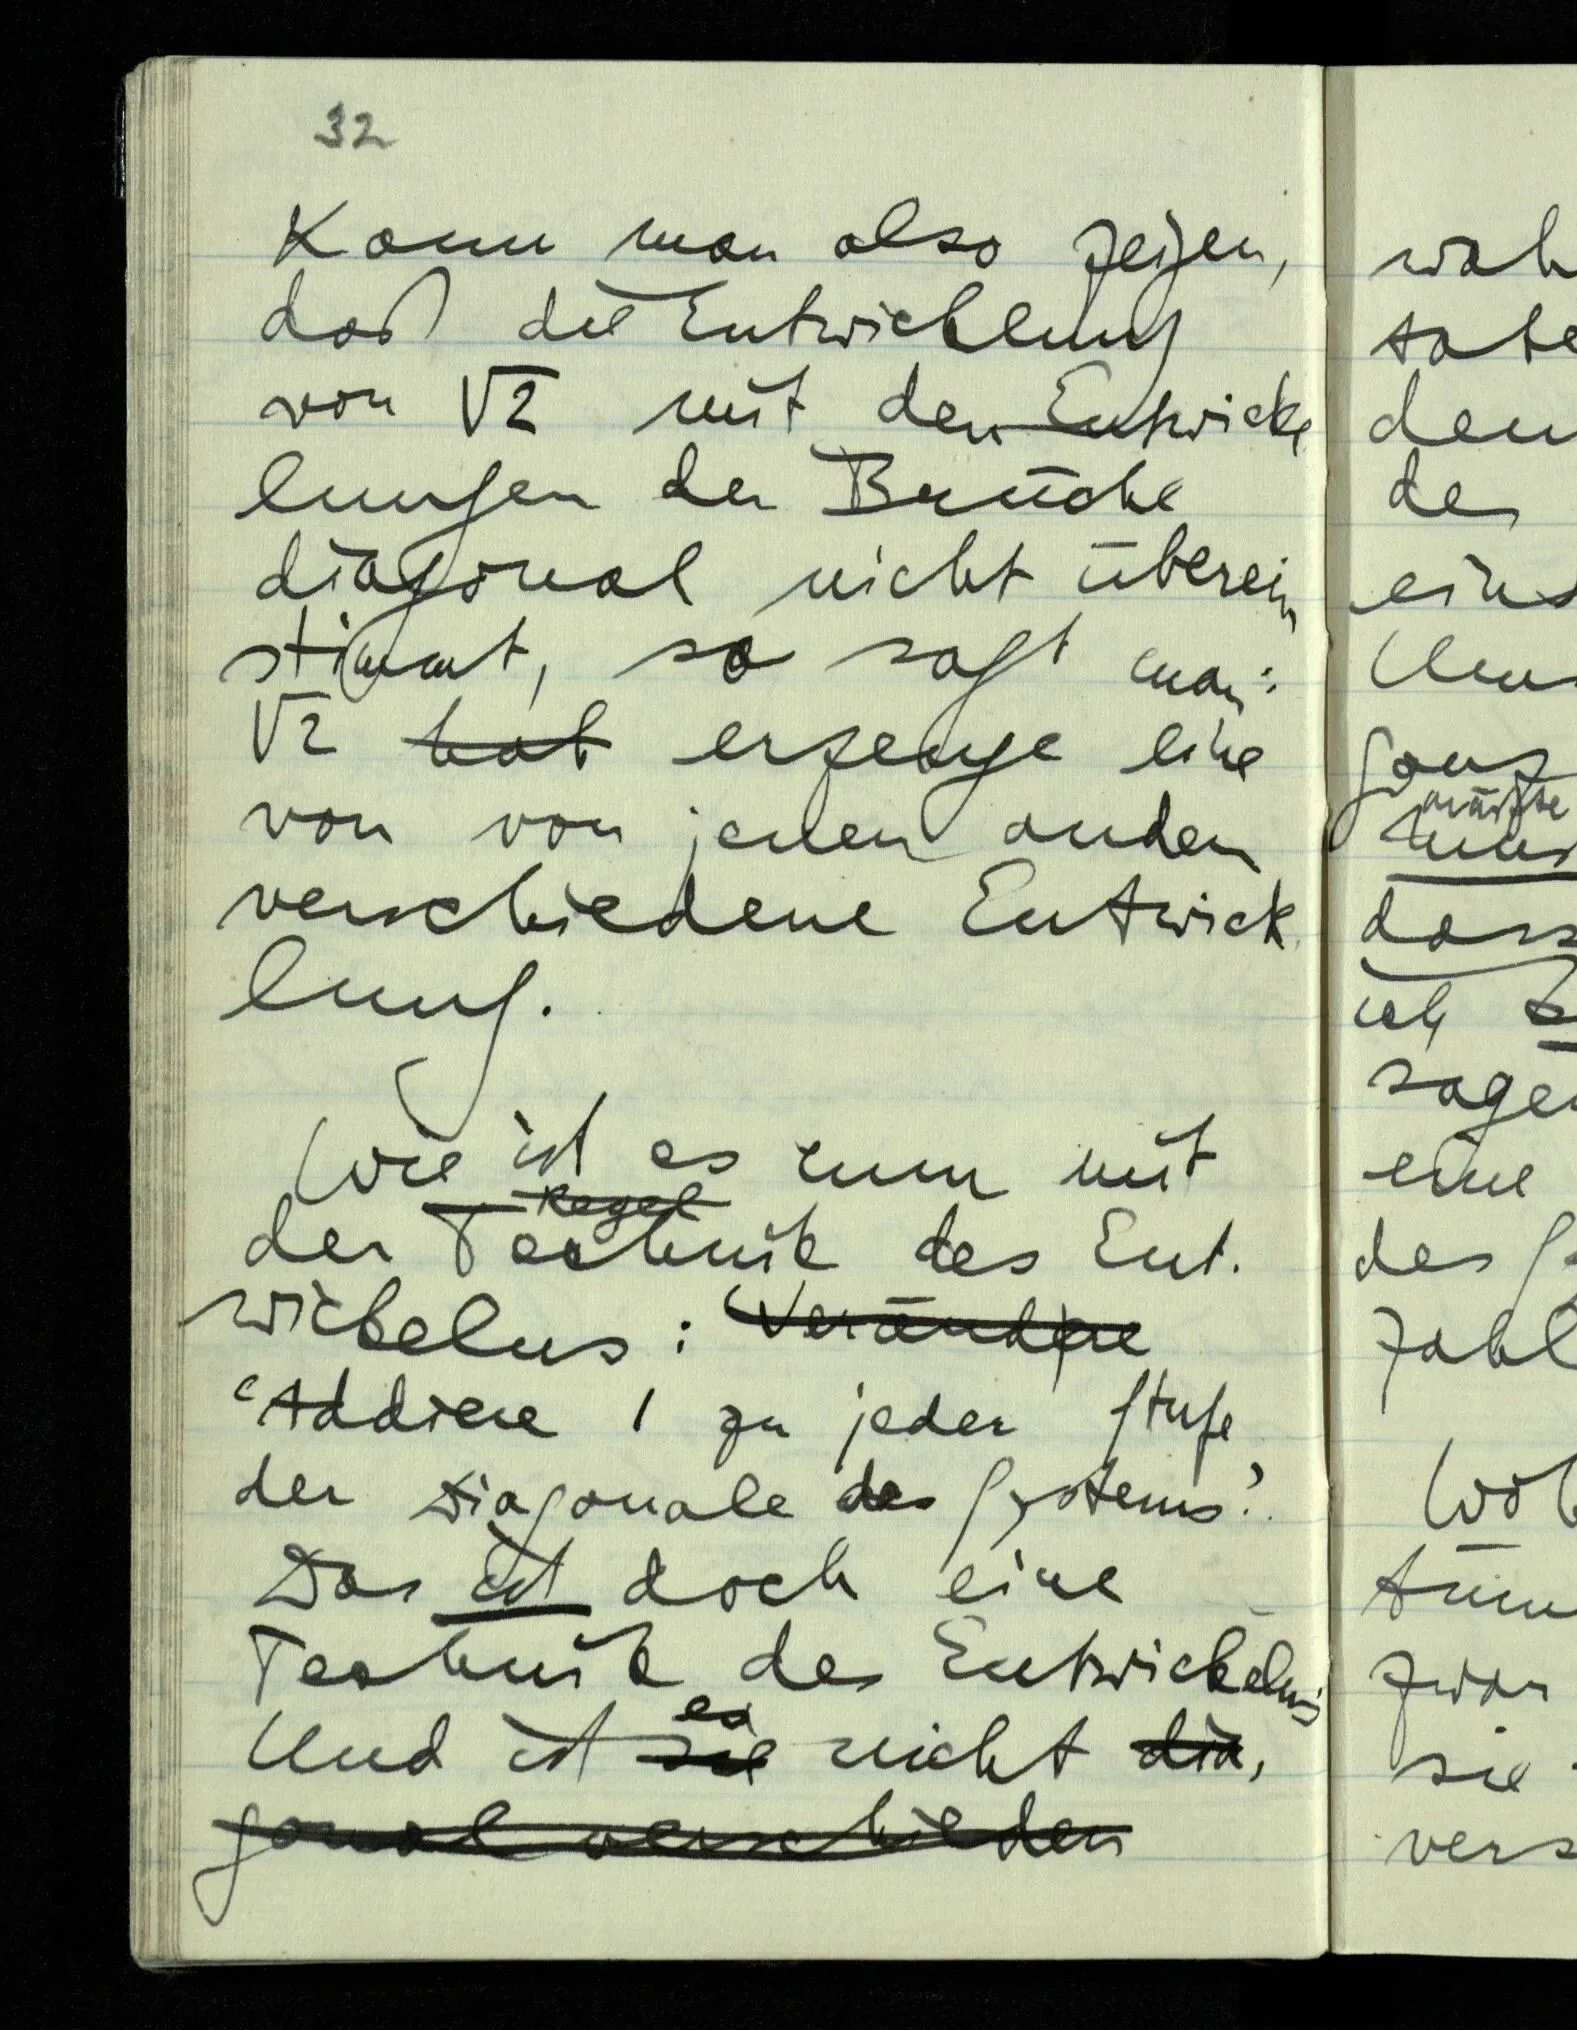 32
Kann man also zeigen,
daß die Entwicklung
von √2 mit den Entwick
lungen der Brüche
diagonal nicht überein
stimmt, so sagt man:
√2 hat erzeuge eine
von von jenen anden
verschiedene Entwick
lung.
Wie ist es nun mit
Regel
der Technik des Ent.
wickelns: Verändere
‘Addiere 1 zu jeder Stufe
der Diagonale des Systems’.
Das ist doch eine
Technik des Entwickelns
es
Und ist sie nicht dia,
gonal verschieden
wah
tate
den
de
eins
ganz
müßte
dass
ich
sagen
eine
des
zahl
zwar
sie
vers